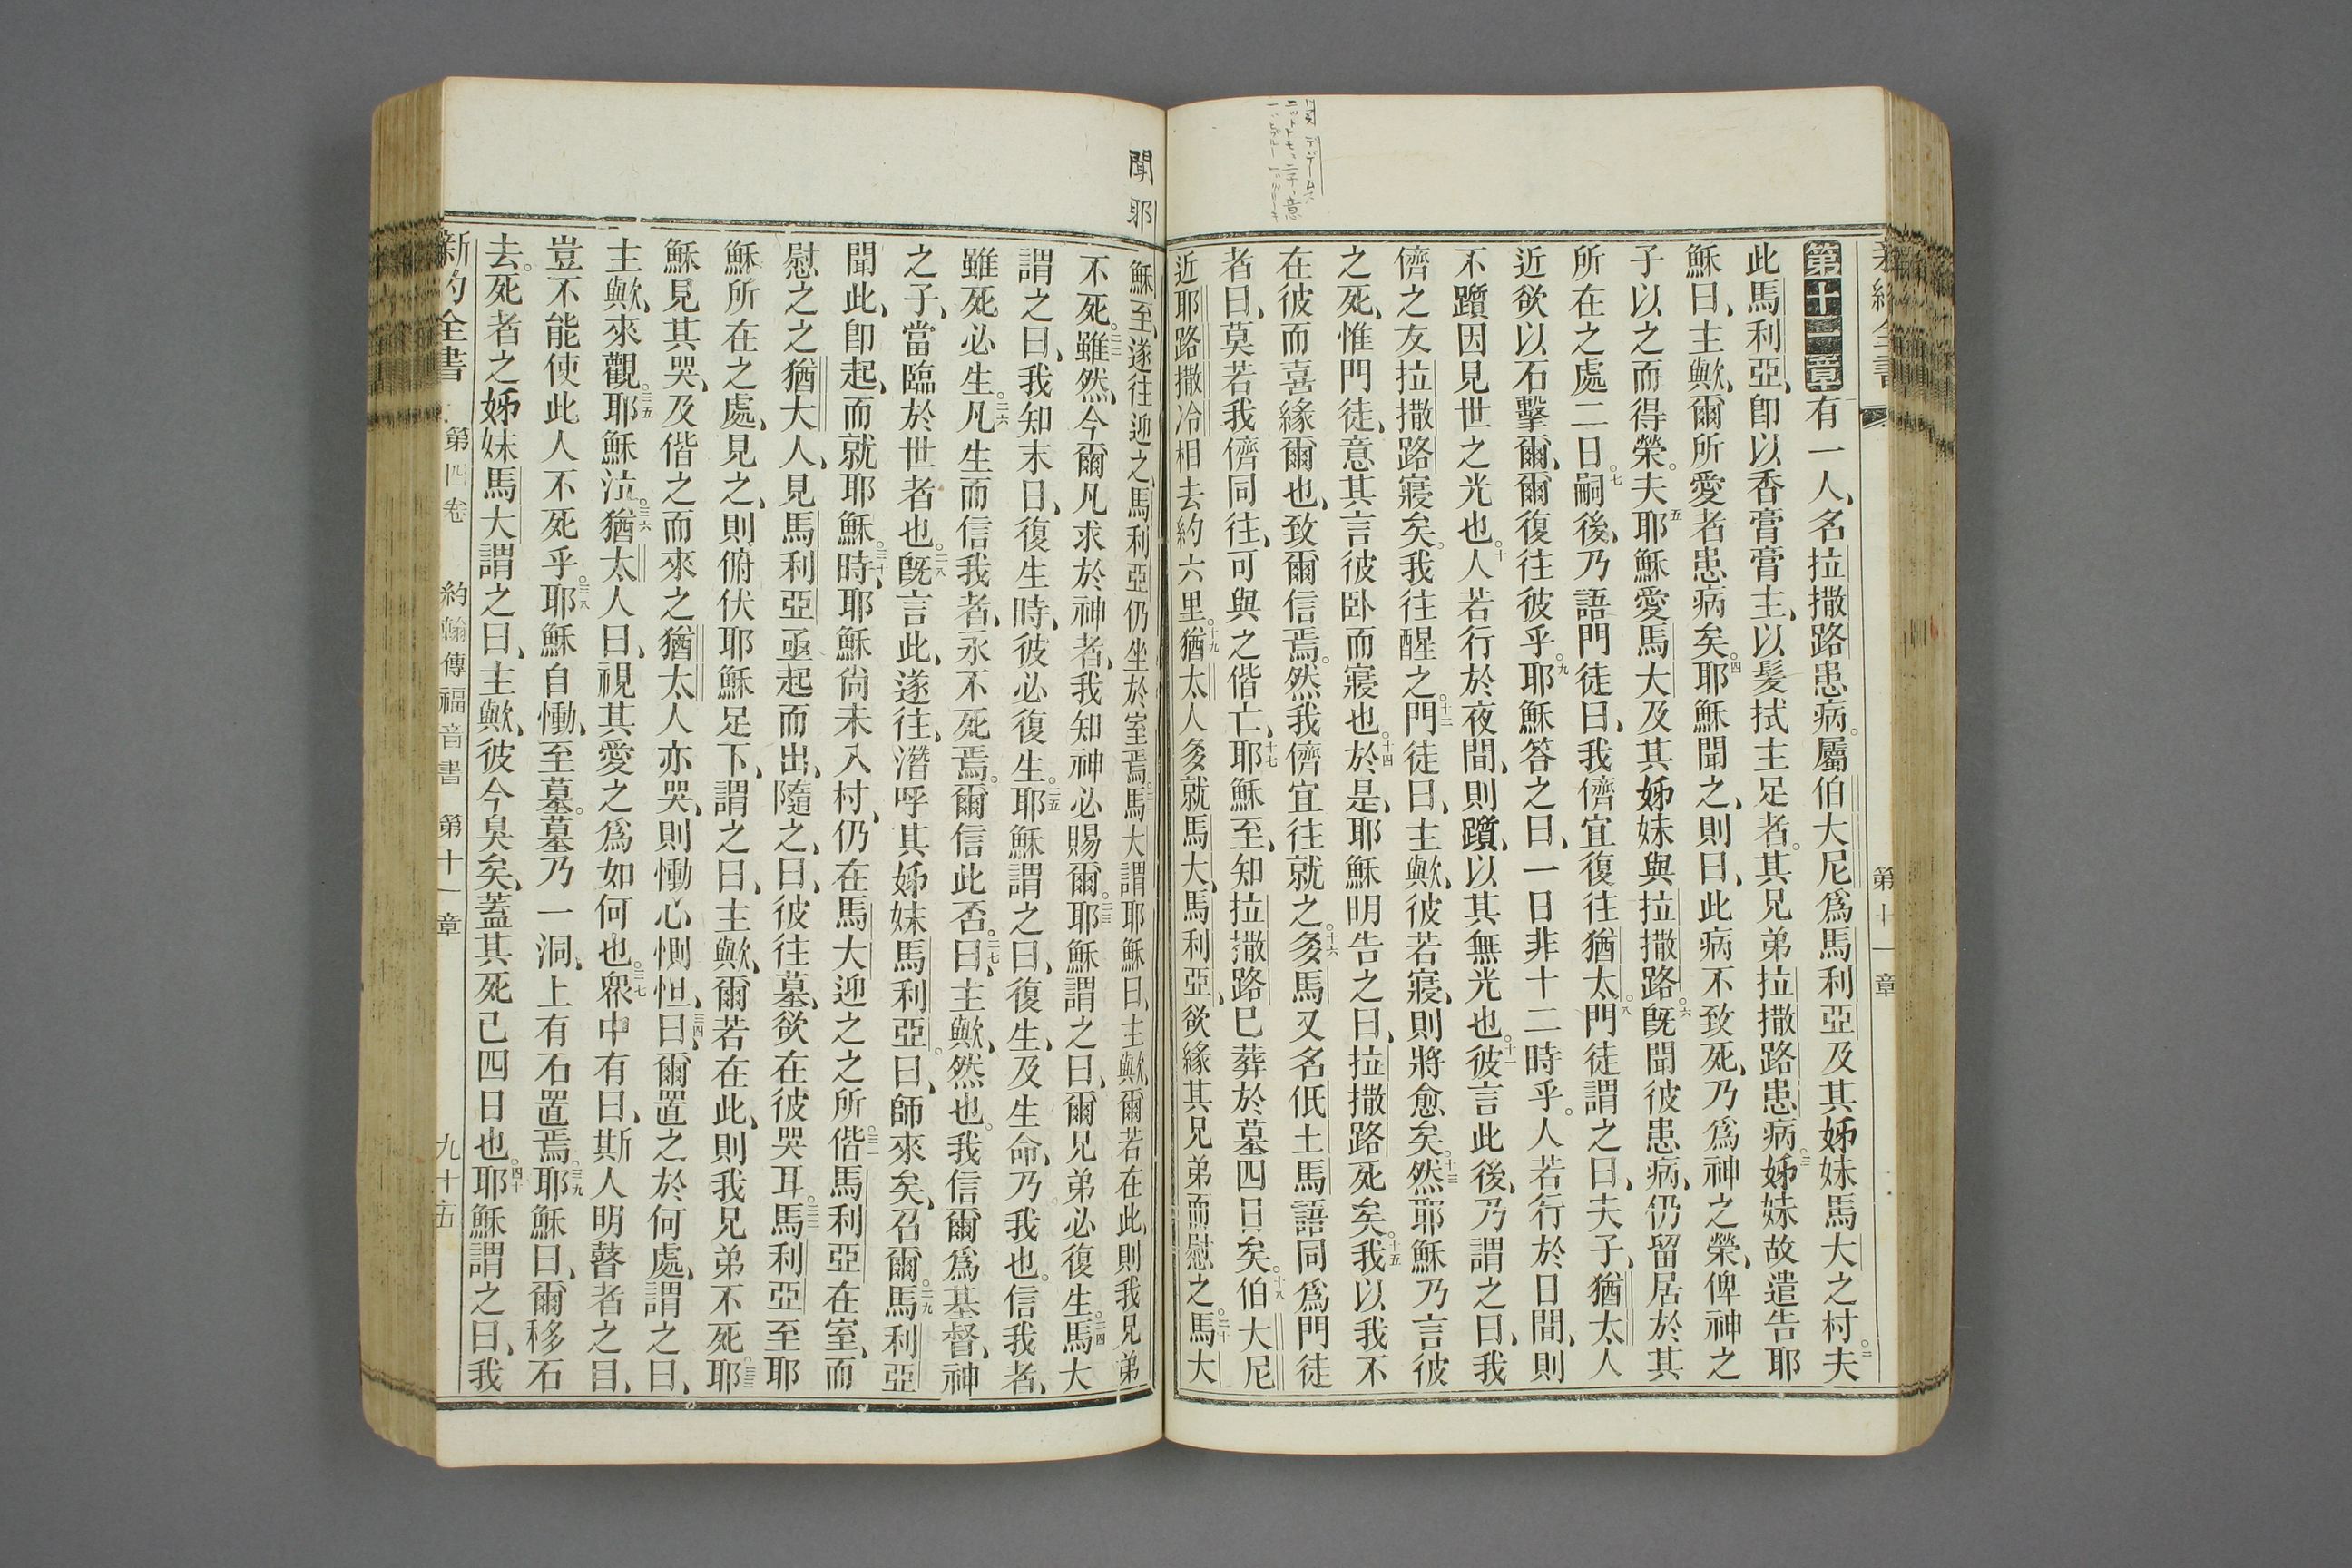 新約全書
第十一章
リ又デデームス
第十一章有一人、名拉撒路患病。屬伯大尼爲馬利亞及其姊妹馬大之村。二夫
此馬利亞、卽以香膏膏主、以髮拭主足者。其兄弟拉撒路患病。三姊妹故遣告耶
穌曰、主歟、爾所愛者患病矣。四耶穌聞之、則曰、此病不致死、乃爲神之榮、俾神之
子以之而得榮。五夫耶穌愛馬大及其姊妹與拉撒路。六旣聞彼患病、仍留居於其
所在之處二日。七嗣後、乃語門徒曰、我儕宜復往猶太。八門徒謂之曰、夫子、猶太人
近欲以石擊爾、爾復往彼乎。九耶穌答之曰、一日非十二時乎。人若行於日間、則
不躓因見世之光也。十人若行於夜間、則躓、以其無光也。十一彼言此後、乃謂之曰、我
儕之友拉撒路寢矣。我往醒之。十二門徒曰、主歟、彼若寢、則將愈矣。十三然耶穌乃言彼
之死、惟門徒、意其言彼卧而寢也。十四於是、耶穌明告之曰、拉撒路死矣。十五我以我不
在彼而喜緣爾也、致爾信焉。然我儕宜往就之。十六多馬又名低土馬語同爲門徒
者曰、莫若我儕同往、可與之偕亡、十七耶穌至、知拉撒路已葬於墓四日矣。十八伯大尼
近耶路撒冷相去約六里。十九猶太人多就馬大、馬利亞、欲緣其兄弟而慰之。二十馬大
聞耶
穌至、遂往迎之、馬利亞仍坐於室焉。二一馬大謂耶穌曰、主歟爾若在此、則我兄弟
不死。二二雖然、今爾凡求於神者、我知神必賜爾。二三耶穌謂之曰、爾兄弟必復生。二四馬大
謂之曰、我知末日、復生時、彼必復生。二五耶穌謂之曰、復生、及生命、乃我也。信我者、
雖死必生。二六凡生而信我者、永不死焉。爾信此否。二七曰、主歟、然也。我信爾爲基督、神
之子、當臨於世者也。二八旣言此、遂往、潛呼其姊妹馬利亞。曰、師來矣、召爾。二九馬利亞
聞此、卽起、而就耶穌。三十時、耶穌尙未入村、仍在馬大迎之之所。三一偕馬利亞在室、而
慰之之猶大人、見馬利亞亟起而出、隨之、曰、彼往墓、欲在彼哭耳。三二馬利亞至耶
穌所在之處、見之、則俯伏耶穌足下、謂之曰、主歟、爾若在此、則我兄弟不死。三三耶
穌見其哭、及偕之而來之猶太人亦哭、則慟心惻怛、三四曰、爾置之於何處、謂之曰、
主歟、來觀。三五耶穌泣。三六猶太人曰、視其愛之爲如何也。三七衆中有曰、斯人明瞽者之目、
豈不能使此人不死乎。三八耶穌自慟、至墓。墓乃一洞、上有石置焉。三九耶穌曰、爾移石
去。死者之姊妹馬大謂之曰、主歟、彼今臭矣、蓋其死已四日也。四十耶穌謂之曰、我
新約全書 第四卷 約翰傳福音書 第十一章 九十五